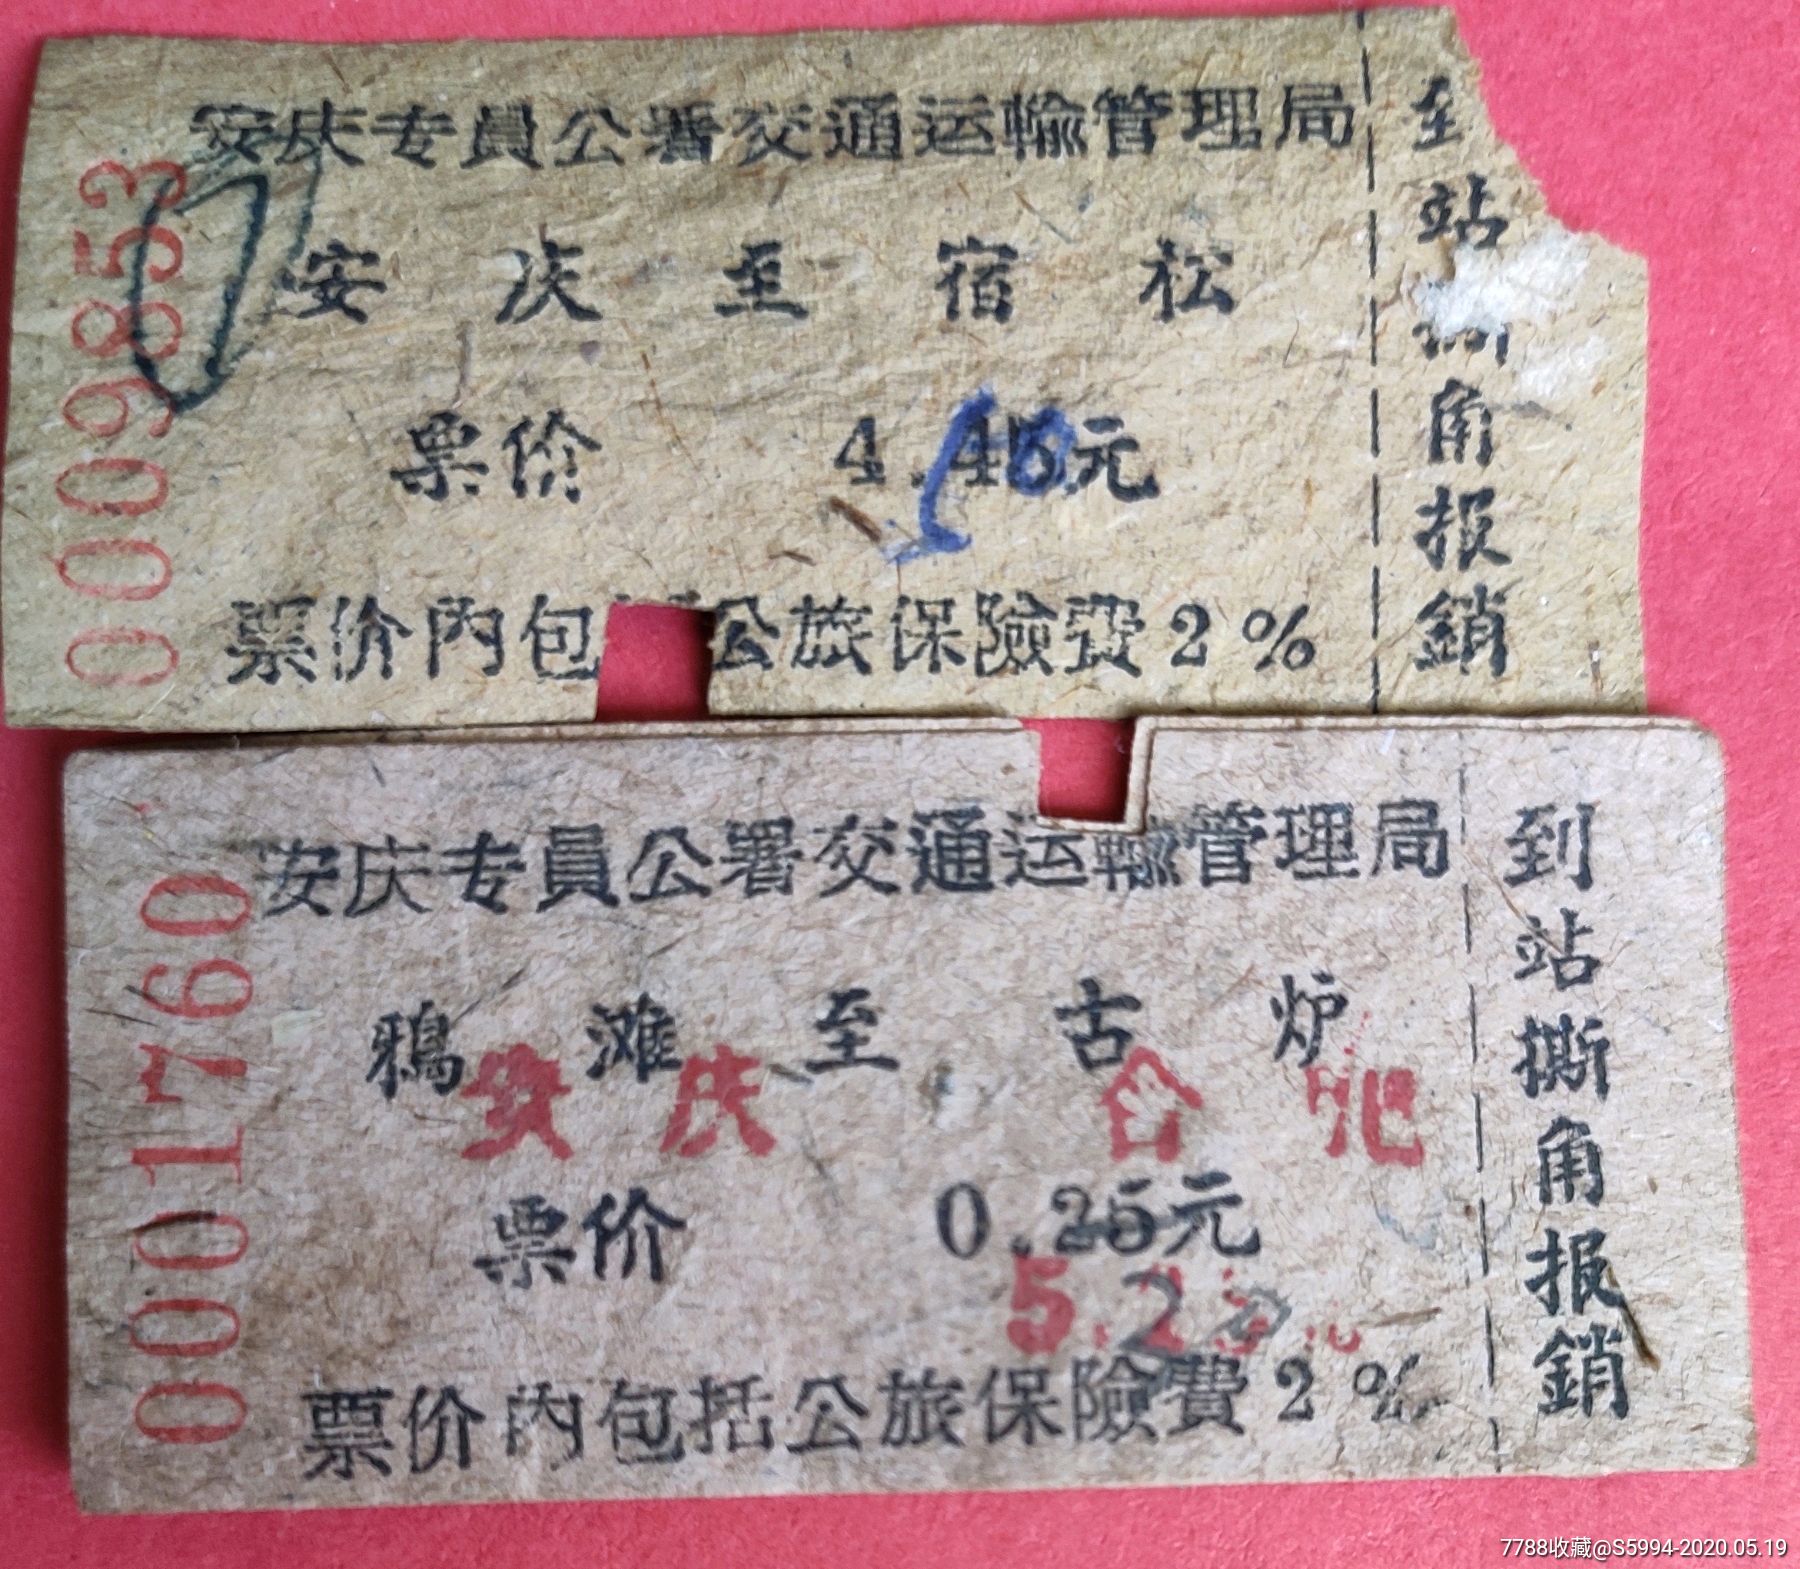 安庆专員公署交通运輸管理局
安庆至宿松
票价 4.45元
票价内包 公旅保險费2%
0009853
至站 角报銷
安庆专員公署交通运輸管理局
鴉滩至古炉
安庆 合肥
票价 0.25元
5.2
票价内包括公旅保險費2%
0001760
到站撕角报銷
7788收藏@S5994-2020.05.19